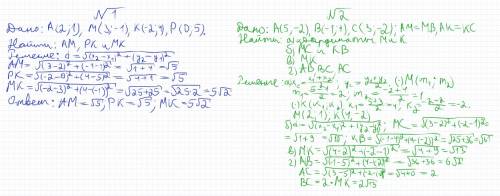 √1
Дано: A(2;1), M(3;-1), K(-2;4), P(0;5).
Найти: AM, PK и MK
Решение: d=√(x₂-x₁)²+(y₂-y₁)²
AM=√(3-2)²+(-1-1)²=√1+4=√5
PK=√(-2-0)²+(4-5)²=√4+1=√5
MK=√(-2-3)²+(4+1)²=√25+25=√25·2=5√2
Ответ: AM=√5, PK=√5, MK=5√2
√2
Дано: A(5,-2), B(-1,4), C(3,-2); AM=MB, AK=KC
Найти: а) координаты M и K
б) MC и KB
в) MK
г) AB, BC, AC
Решение:
(·)M(m₁; m₂)
M(2,1), K(4,-2)
б) d=√(x₂-x₁)²+(y₂-y₁)²; MC=√(3-2)²+(-2-1)²=
=√1+9=√10, KB=√(-1-4)²+(4+2)²=√25+36=√61
в) MK=√(4-2)²+(-2-1)²=√4+9=√13
г) AB=√(-1-5)²+(4+2)²=√36+36=6√2
AC=√(3-5)²+(-2+2)²=√4+0=2
BC=2·MK=2√13